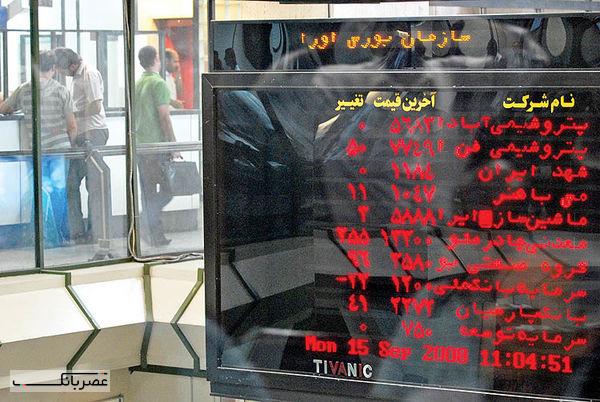 سازمان بورس اورا
نام شرکت آخرین قیمت تغییر
پتروشیمی‌آبادا ۵۶۸۳ ۰
پتروشیمی فن ا ۷۷۴۹ ۵۰
شهد ایران ۱۱۸۴ ۰
می باهنر ۱۰۴۷ ۱۱
ماشین‌ساز ایرا ۵۸۸۸ ۲
معدنی‌چادرملو ۱۳۲۰۰ ۲۵۵
گروه صنعتی بو ۲۵۸۰ ۹۶
سرمایه‌بانکملی ۱۲۰۰ ۲۷-
بانکپارسیان ۲۲۷۲ ۴۱
سرمایه‌توسعه ۷۵۰ ۰
Mon 15 Sep 2008 11:04:51
TIVANIC
عصر بانک